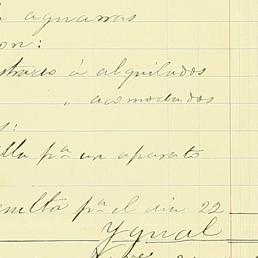 aguarras
on:
strado á alquilados
" acomodados
s:
lla pª un aparato
sulta pª el dia 22
Ygual